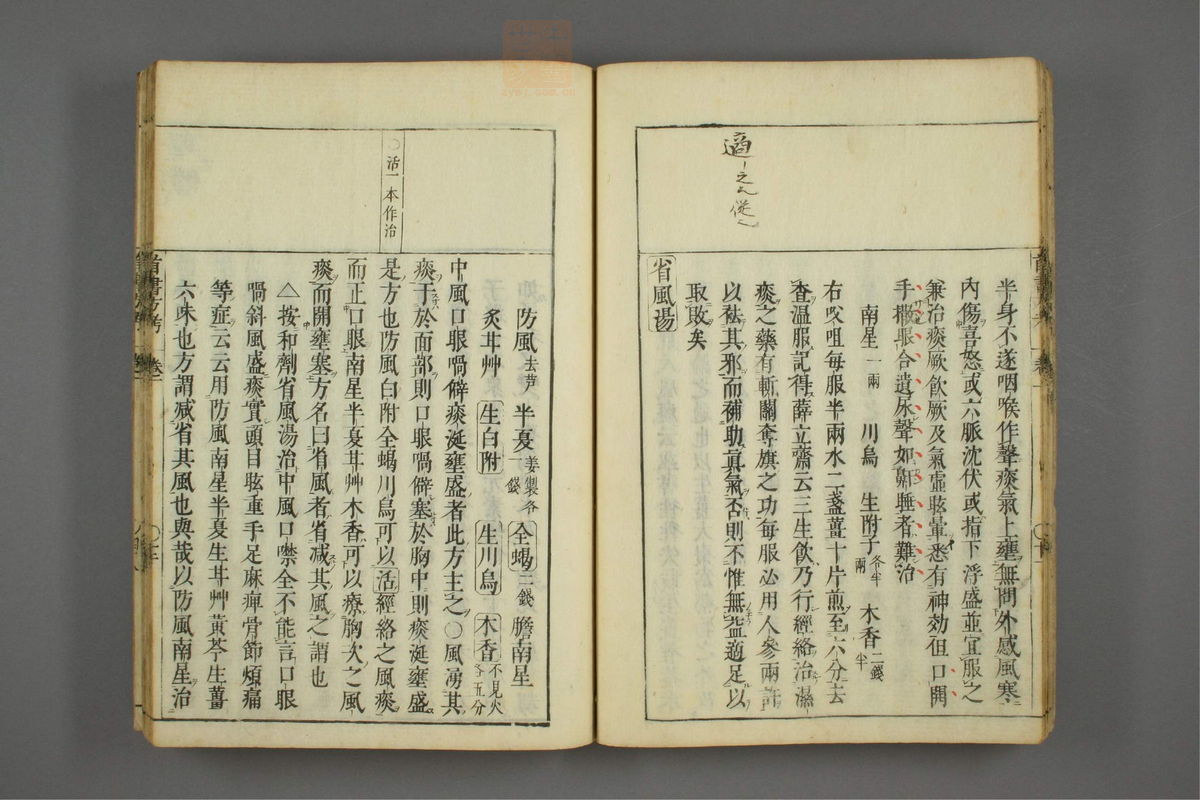 適之人從
半身不遂咽喉作聲痰氣上壅無問外感風寒
內傷喜怒或六脈沈伏或指下浮盛並宜服之
兼治痰厥飲厥及氣虛眩暈悉有神効但口開
手撒眼合遺尿聲如鼾睡者難治
南星一兩 川烏 生附子各半兩 木香二錢半
右㕮咀每服半兩水二盞薑十片煎至六分去
査溫服記得薛立齋云三生飲乃行經絡治濕
痰之藥有斬關奪旗之功每服必用人參兩許
以袪其邪而補助真氣否則不惟無益適足以
取敗矣
省風湯
防風去芦 半夏姜製各錢 全蝎三錢 膽南星
炙甘艸 生白附 生川烏 木香不見火各五分
中風口眼喎僻痰涎壅盛者此方主之○風湧其
痰于於面部則口眼喎僻塞於胸中則痰涎壅盛
是方也防風白附全蝎川烏可以活經絡之風痰
而正口眼南星半夏甘艸木香可以療胸次之風
痰而開壅塞方名曰省風者省減其風之謂也
△按和劑省風湯治中風口噤全不能言口眼
喎斜風盛痰實頭目眩重手足麻痺骨節煩痛
等症云云用防風南星半夏生甘艸黃芩生薑
六味也方謂減省其風也與哉以防風南星治
○活一本作治
首書方考 卷一